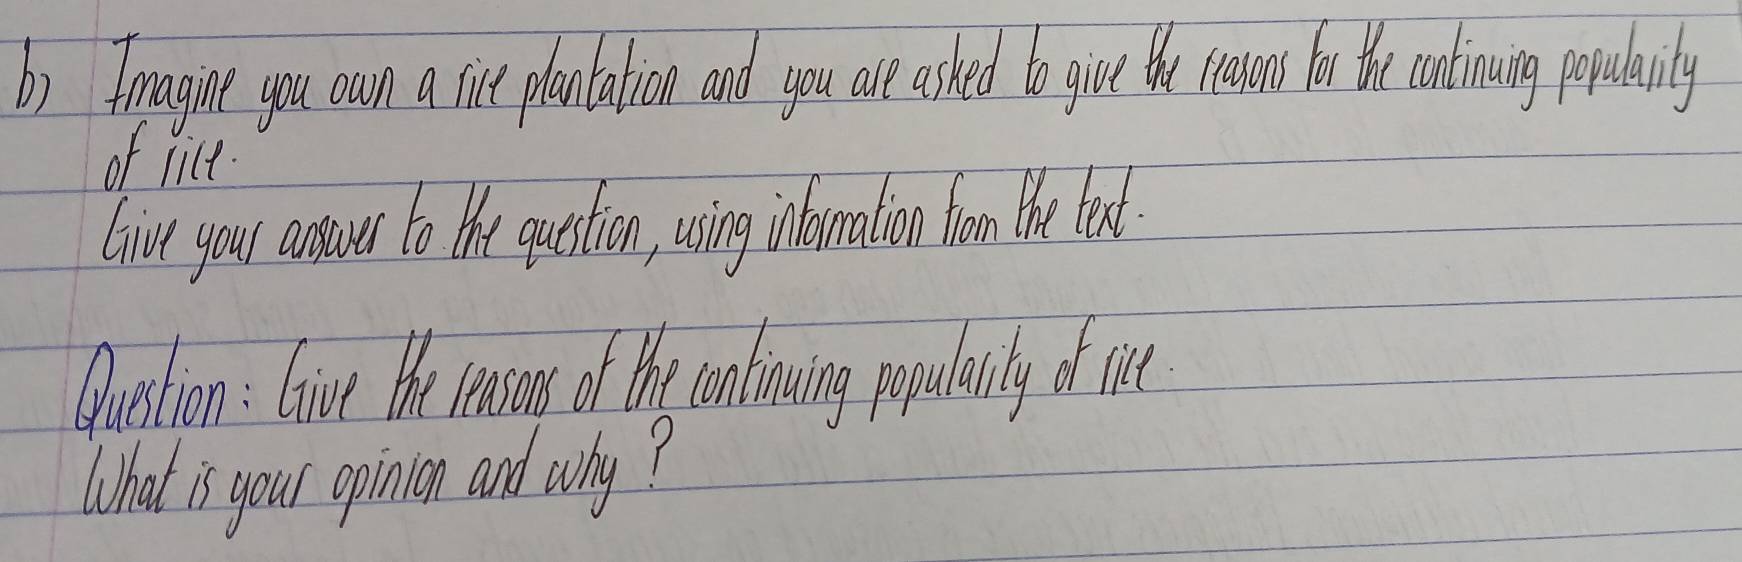 b) Imagine you own a rice plantation and you are asked to give the reasons for the continuing popularity
of rice.
Give your answer to the question, using information from the text.
Question: Give the reasons of the continuing popularity of rice.
What is your opinion and why?